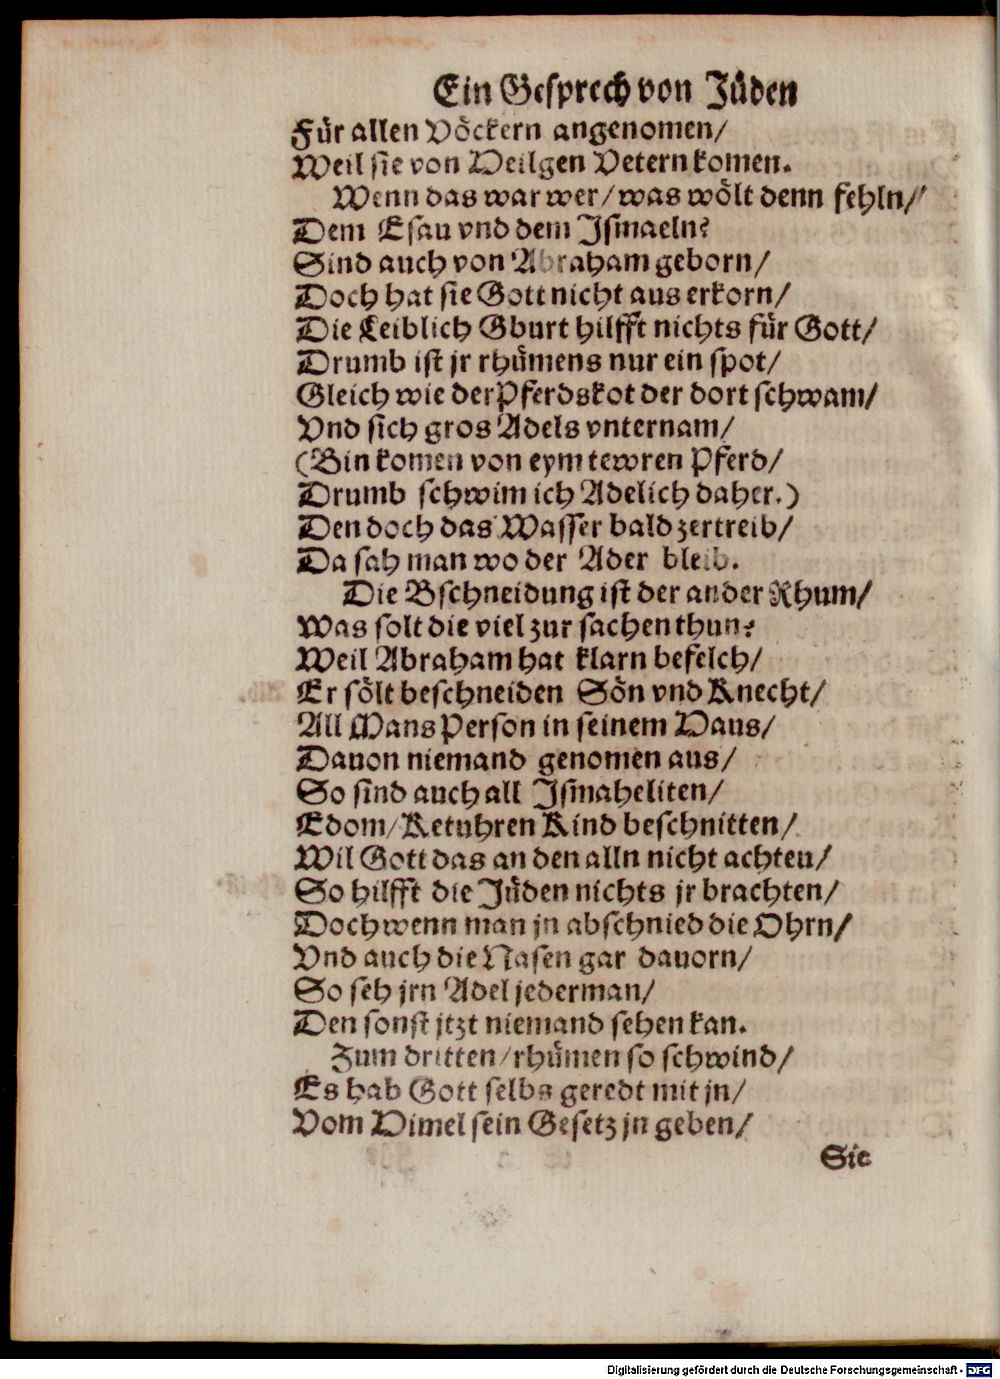 Ein Gesprech von Jüden
Für allen Völckern angenomen/
Weil sie von Heilgen Vetern komen.
Wenn das war wer/was wölt denn fehln/
Dem Esau vnd dem Jsmaeln?
Sind auch von Abraham geborn/
Doch hat sie Gott nicht aus erkorn/
Die Leiblich Gburt hilfft nichts für Gott/
Drumb ist jr rhümens nur ein spot/
Gleich wie der Pferdskot der dort schwam/
Vnd sich gros Adels vnternam/
(Bin komen von eym tewren Pferd/
Drumb schwim ich Adelich daher.)
Den doch das Wasser bald zertreib/
Da sah man wo der Ader bleib.
Die Bschneidung ist der ander Rhum/
Was solt die viel zur sachen thun?
Weil Abraham hat klarn befelch/
Er sölt beschneiden Sön vnd Knecht/
All Mans Person in seinem Haus/
Dauon niemand genomen aus/
So sind auch all Jsmaheliten/
Edom/Ketuhren Kind beschnitten/
Wil Gott das an den alln nicht achten/
So hilfft die Jüden nichts jr brachten/
Doch wenn man jn abschnied die Ohrn/
Vnd auch die Nasen gar dauorn/
So seh jrn Adel jederman/
Den sonst jtzt niemand sehen kan.
Zum dritten/rhümen so schwind/
Es hab Gott selbs geredt mit jn/
Vom Himel sein Gesetz jn geben/
Sie
Digitalisierung gefördert durch die Deutsche Forschungsgemeinschaft - DFG